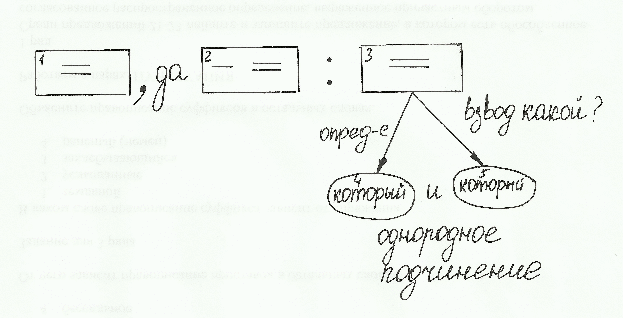 1 , да 2 : 3
опред-е взвод какой?
4 который и 5 который
однородное
подчинение